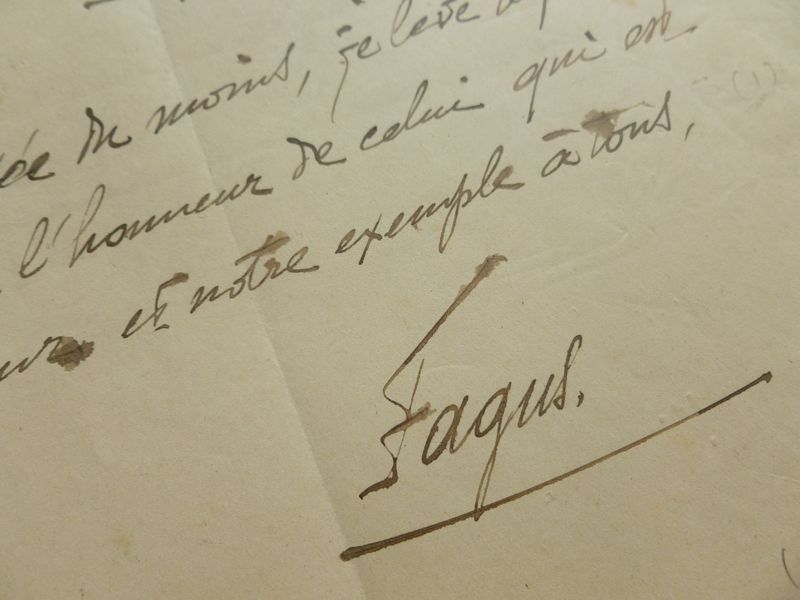 du moins, je lève
l'honneur de celui qui est
et notre exemple à tous,
Fagus.
(1)